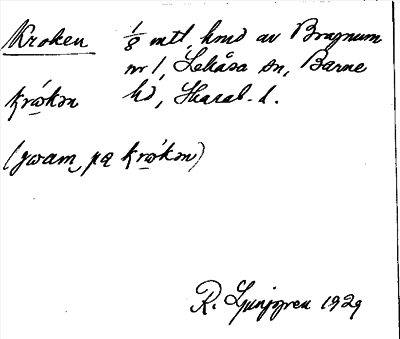 Kroken 1/8 mtl, hmd av Bragnum
nr 1, Lekåsa sn, Barne
krókən hd, Skarab. l.
(gwam, pa krókən)
R. Ljunggren 1929